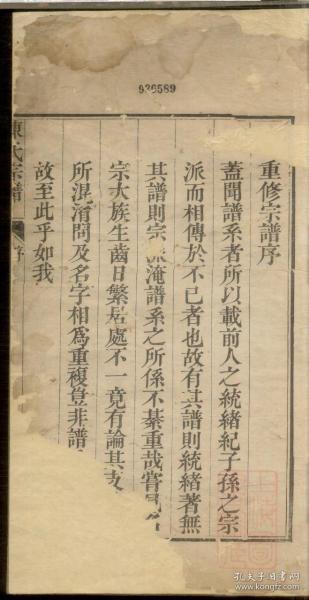 936589
重修宗譜序
蓋聞譜系者所以載前人之統緒紀子孫之宗
派而相傳於不已者也故有其譜則統緒著無
其譜則宗派淹譜系之所係不綦重哉嘗見名
宗大族生齒日繁居處不一竟有論其支
所混淆問及名字相為重複豈非譜
故至此乎如我
陳氏宗譜
序
孔夫子旧书网
www.kongfz.com